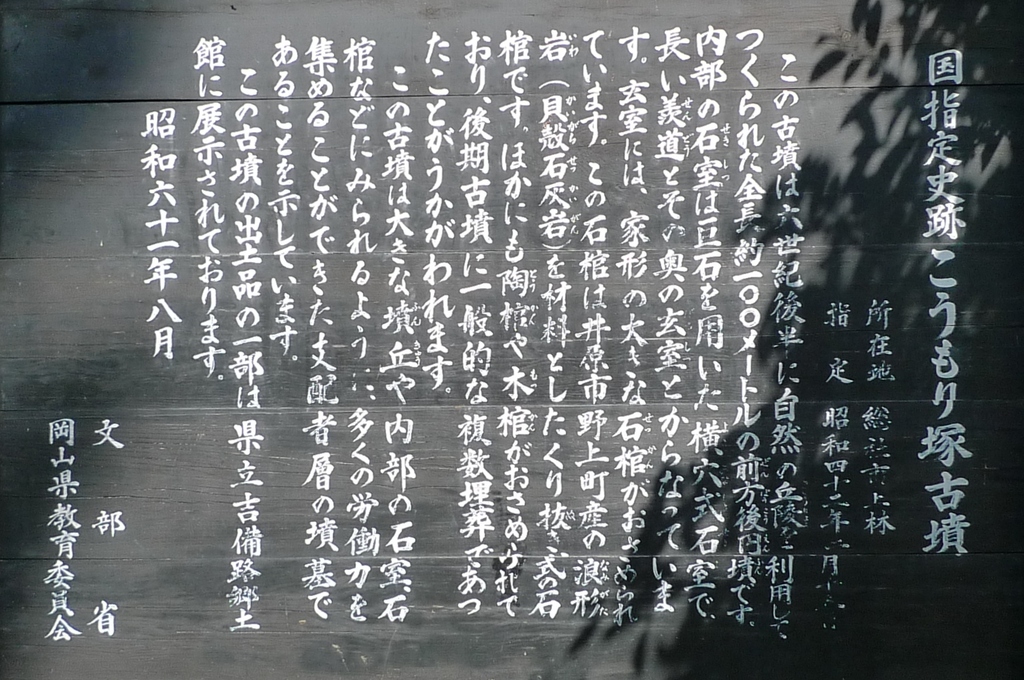 国指定史跡こうもり塚古墳
所在地 総社市上林
指定 昭和四十三年二月十六日
この古墳は六世紀後半に自然の丘陵を利用して
つくられた全長約一〇〇メートルの前方後円墳です。
内部の石室は巨石を用いた横穴式石室で、
長い羨道とその奥の玄室とからなっていま
す。玄室には、家形の大きな石棺がおさめられ
ています。この石棺は井原市野上町産の浪形
岩(貝殻石灰岩)を材料としたくり抜き式の石
棺です。ほかにも陶棺や木棺がおさめられて
おり、後期古墳に一般的な複数埋葬であっ
たことがうかがわれます。
この古墳は大きな墳丘や内部の石室、石
棺などにみられるように、多くの労働力を
集めることができた支配者層の墳墓で
あることを示しています。
この古墳の出土品の一部は県立吉備路郷土
館に展示されております。
昭和六十一年八月
文部省
岡山県教育委員会